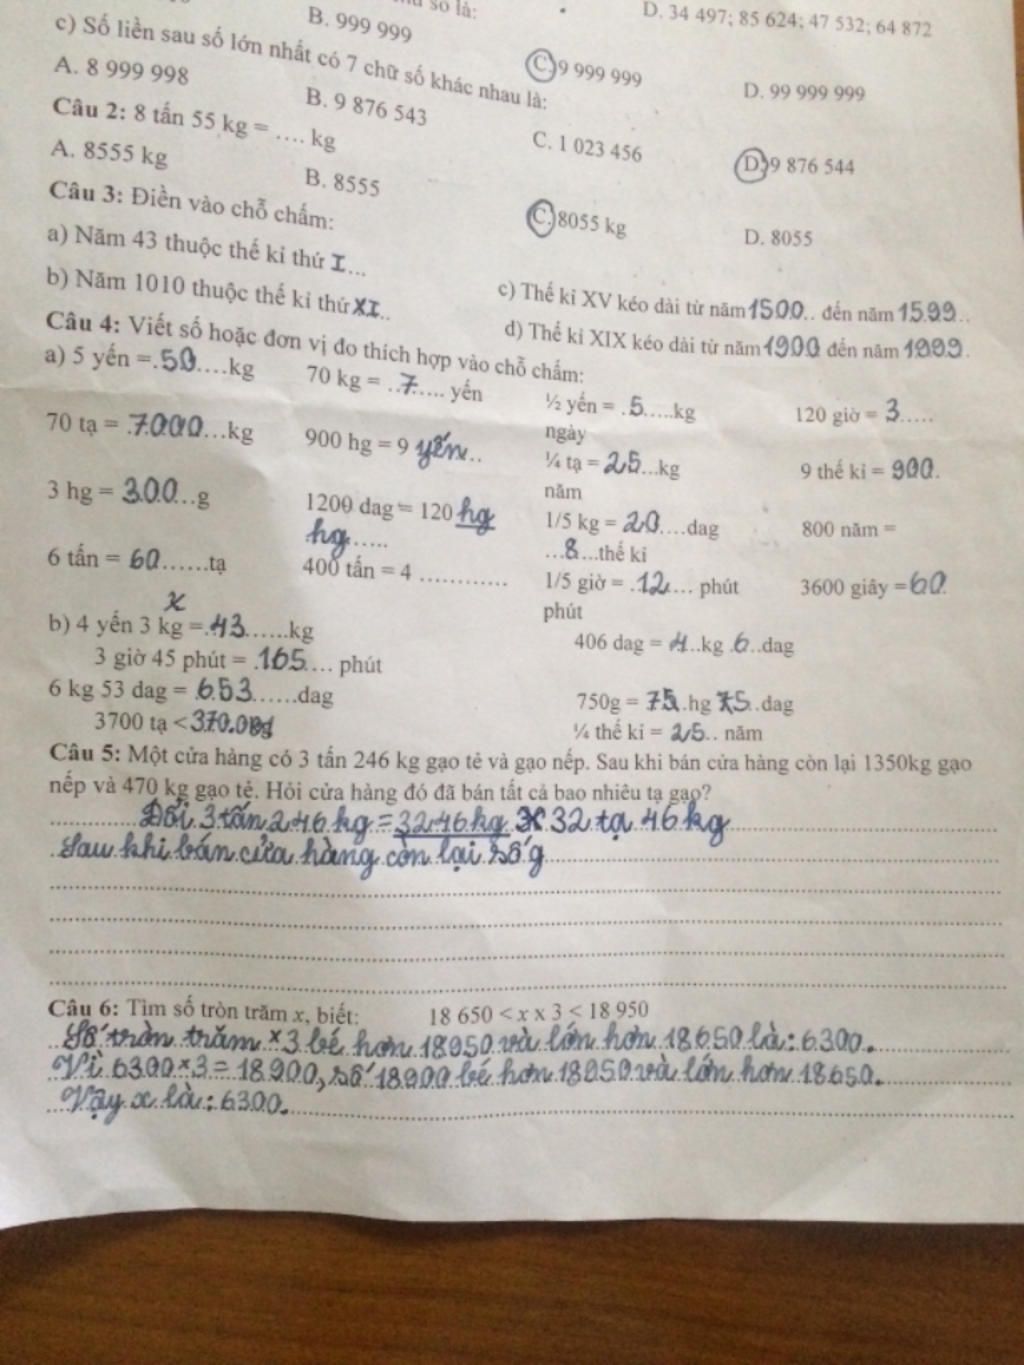 số là:
B. 999 999
D. 34 497; 85 624; 47 532; 64 872
C. 9 999 999
D. 99 999 999
c) Số liền sau số lớn nhất có 7 chữ số khác nhau là:
A. 8 999 998
B. 9 876 543
C. 1 023 456
D. 9 876 544
Câu 2: 8 tấn 55 kg = .... kg
A. 8555 kg
B. 8555
C. 8055 kg
D. 8055
Câu 3: Điền vào chỗ chấm:
a) Năm 43 thuộc thế kỉ thứ I...
c) Thế kỉ XV kéo dài từ năm 1500.. đến năm 1599..
b) Năm 1010 thuộc thế kỉ thứ XI..
d) Thế kỉ XIX kéo dài từ năm 1900 đến năm 1999.
Câu 4: Viết số hoặc đơn vị đo thích hợp vào chỗ chấm:
a) 5 yến = .50....kg
70 kg = ..7..... yến
½ yến = .5.....kg
120 giờ = 3.....
ngày
70 tạ = .7000...kg
900 hg = 9 yến..
¼ tạ = 25...kg
9 thế kỉ = 900.
năm
3 hg = 300...g
1200 dag = 120 hg
1/5 kg = 20....dag
800 năm =
hg.....
...8...thế kỉ
6 tấn = 60......tạ
400 tấn = 4 ............
1/5 giờ = .12.... phút
3600 giây = 60.
phút
x
b) 4 yến 3 kg = .43......kg
406 dag = 4..kg .6..dag
3 giờ 45 phút = .165.... phút
6 kg 53 dag = 653......dag
750g = 75.hg 75..dag
3700 tạ <
¼ thế kỉ = 25.. năm
Câu 5: Một cửa hàng có 3 tấn 246 kg gạo tẻ và gạo nếp. Sau khi bán cửa hàng còn lại 1350kg gạo
nếp và 470 kg gạo tẻ. Hỏi cửa hàng đó đã bán tất cả bao nhiêu tạ gạo?
Đổi 3 tấn 246 kg = 3246 kg 32 tạ 46 kg
Sau khi bán cửa hàng còn lại số g
Câu 6: Tìm số tròn trăm x, biết: 18 650 < x x 3 < 18 950
Số tròn trăm × 3 bé hơn 18950 và lớn hơn 18650 là: 6300.
Vì 6300 × 3 = 18900, số 18900 bé hơn 18950 và lớn hơn 18650.
Vậy x là: 6300.